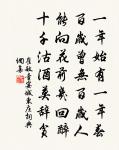 一年始有一年春
百歲曾無百歲人
能向花前幾回醉
十千沽酒莫辭貧
崔敏童宴城東莊詞典
網集